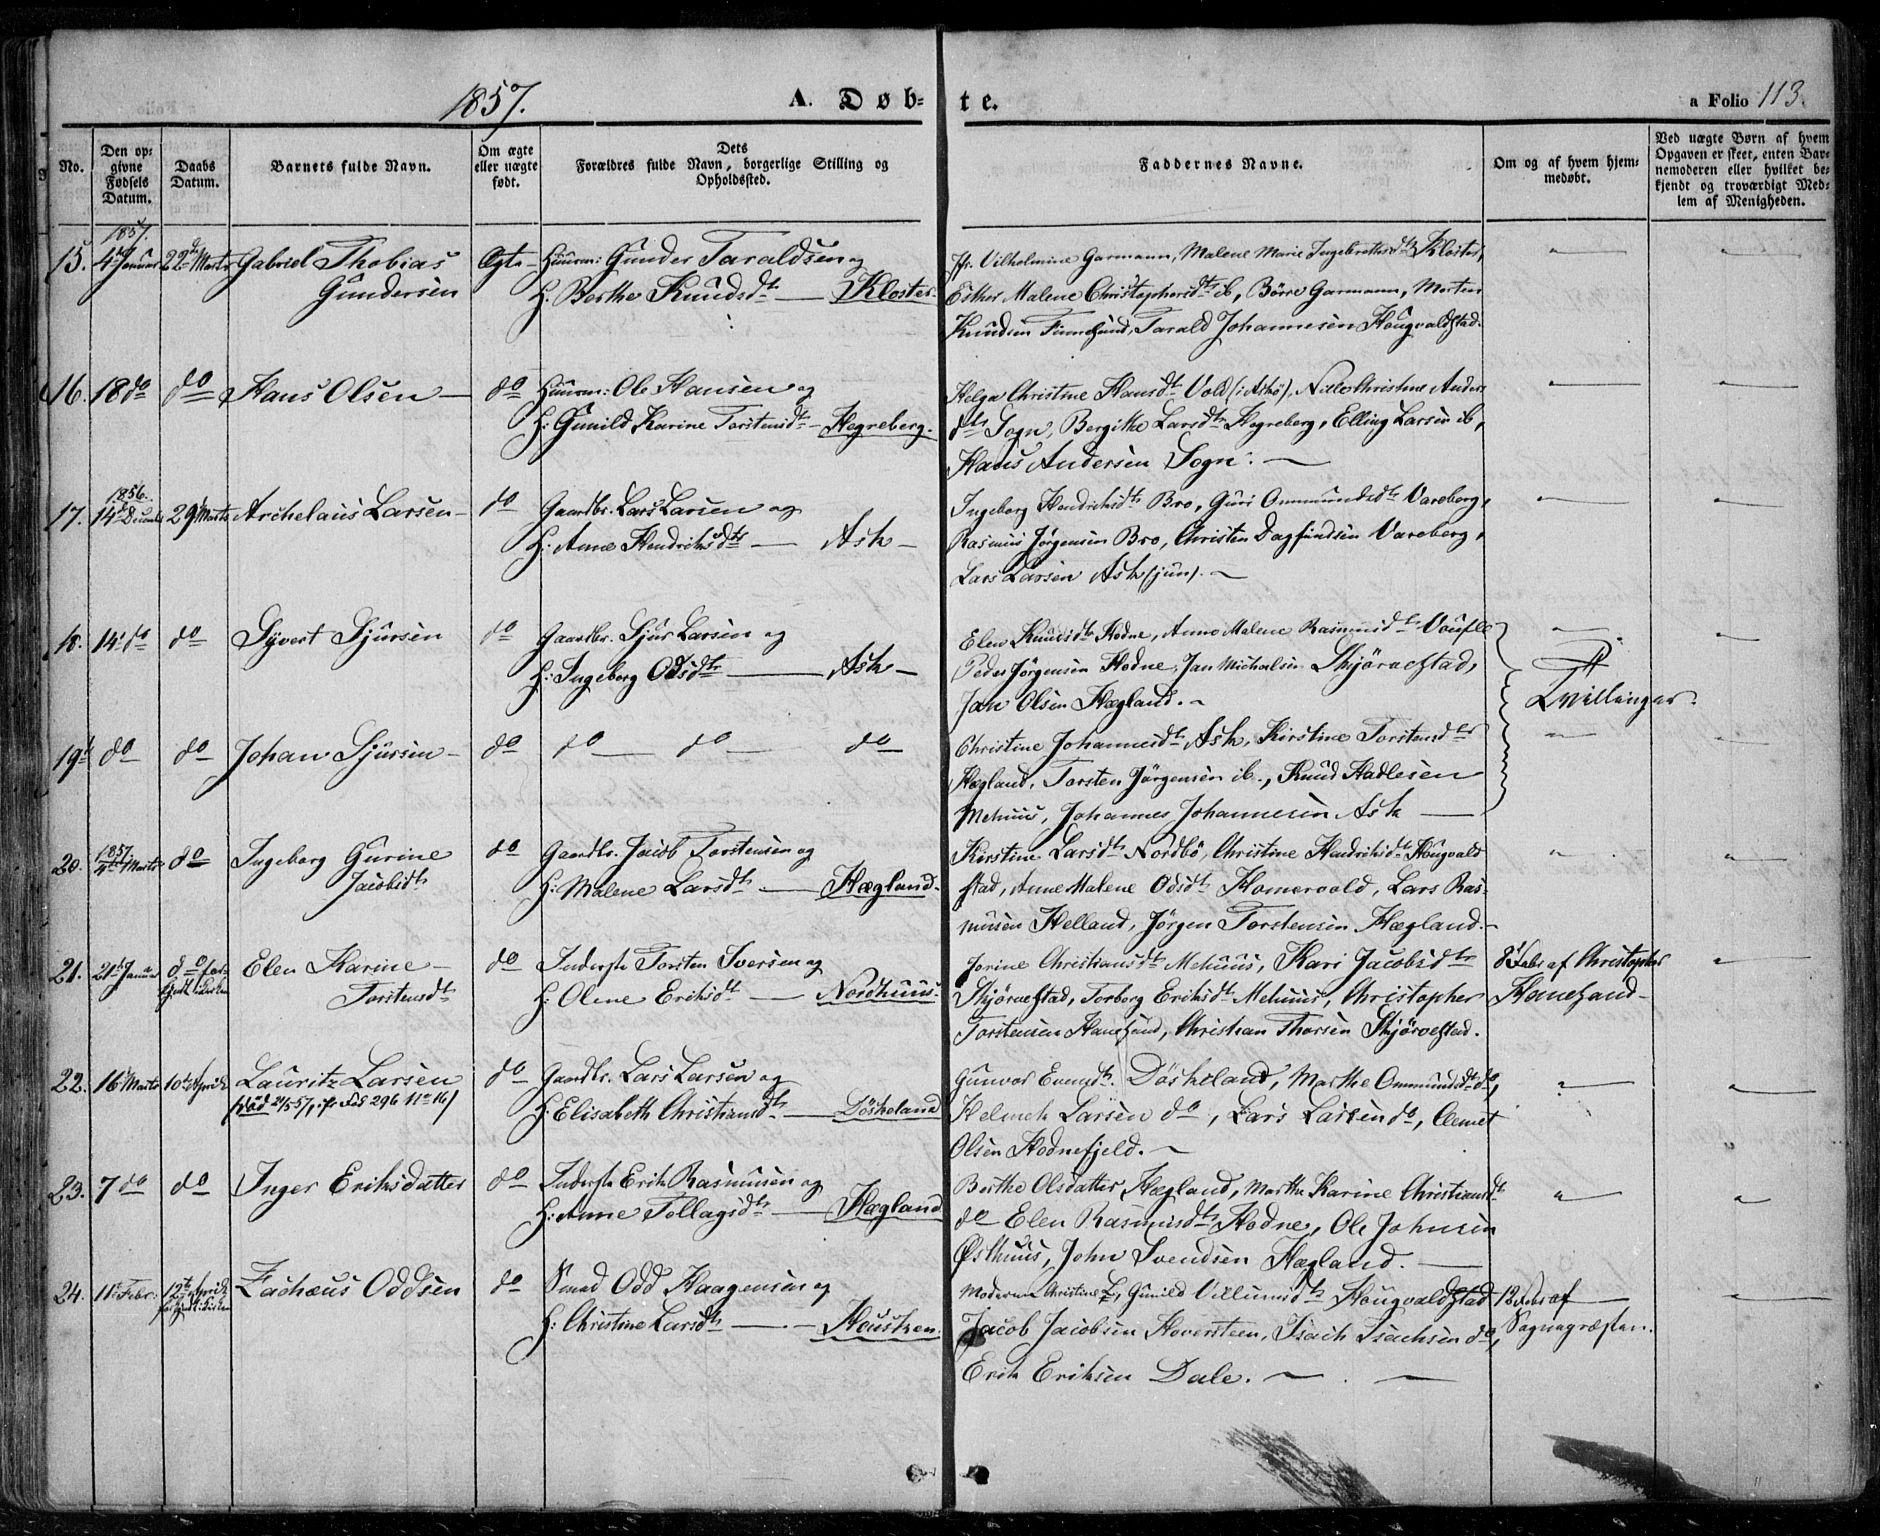 1857.
A. Døb-
te.
a Folio 113.
No.
Den op-
givne
Fødsels
Datum.
Daabs
Datum.
Barnets fulde Navn.
Om ægte
eller uægte
født.
Dets
Forældres fulde Navn, borgerlige Stilling og
Opholdssted.
Faddernes Navne.
Om og af hvem hjem-
medøbt.
Ved uægte Børn af hvem
Opgaven er skeet, enten Bar-
nemoderen eller hvilket be-
kjendt og troværdigt Med-
lem af Menigheden.
1857.
15. 4de Januar 22de Marts Gabriel Thobias Ægte Huusm: Gunder Taraldsen og
Gundersen H: Berthe Knudsdtr — Kloster.
Jfr. Vilhelmine Garmann, Malene Marie Ingebrethsdtr Kloster,
Esther Malene Christophersdtr ib, Børre Garmann, Morten
Knudsen Finnesand, Tarald Johannesen Hougvaldstad.
16. 18 do do Hans Olsen — do Huusm: Ole Hansen og
H: Gunild Karine Torstensdtr — Hegreberg.
Helga Christine Hansdtr Vold (i Askø), Christine Anders
dtr Sogn, Bergithe Larsdtr Hegreberg, Elling Larsen ib,
Hans Andersen Sogn. —
1856.
17. 14de Decembr 29 Marts Archelaus Larsen — do Gaardbr. Lars Larsen og
H: Anne Hendriksdtr — Ask —
Ingeborg Hendriksdtr Bro, Guri Ommundsdtr Vareberg,
Rasmus Jørgensen Bro, Christen Dagfindsen Vareberg,
Lars Larsen Ask (jun). —
18. 14 do do Syvert Sjursen do Gaardbr. Sjur Larsen og
H: Ingeborg Odsdtr — Ask —
Elen Knudsdtr Hodne, Anne Malene Rasmusdtr Voufle
Peder Jørgensen Hodne, Jan Michalsen Skjørvestad,
Jan Olsen Hægland. —
Tvillinger.
19 do do Johan Sjursen — do do — do — do
Christine Johannesdtr Ask, Kirstine Torstensdtr
Hægland, Torsten Jørgensen ib., Knud Hadlesen
Mehuus, Johannes Johannesen Ask —
1857
20. Marts do Ingeborg Gurine do Gaardbr. Jacob Torstensen og
Jacobsdtr H: Malene Larsdtr — Hægland.
Kirstine Larsdtr Nordbø, Christine Hendriksdtr Hougvald
stad, Anne Malene Odsdtr Homervold, Lars Ras-
mussen Helland, Jørgen Torstensen Hægland. —
21. 21de Januar do Elen Karine — do Inderste Torsten Iversen og
Torstensdtr H: Olene Eriksdtr — Nordhuus.
Jorine Christiansdtr Mehuus, Kari Jacobsdtr
Skjørvestad, Torborg Eriksdtr Mehuus, Christopher
Torstensen Hanesand, Christian Thorsen Skjørvestad.
8 Febr af Christopher
Hanesand —
22. 16 Marts 10de April Lauritz Larsen do Gaardbr. Lars Larsen og
død 21/5 57, H: Elisabeth Christiansdtr — Døskeland
Gunvor Evensdtr. Døskeland, Marthe Ommundsdtr do,
Helmik Larsen do, Lars Larsen do, Clemet
Olsen Hodnefjeld. —
23. 7 do do Inger Eriksdatter do Inderste Erik Rasmusen og
H: Anne Tollagsdtr — Hægland
Berthe Olsdatter Hægland, Marthe Karine Christiansdtr
do Elen Rasmusdtr Hodne, Ole Johnsen
Østhuus, John Svendsen Hægland. —
24. 11 Febr: 12te April Zachæus Oddsen do Smed Odd Haagensen og
H: Christine Larsdtr — Houskeen.
Moderen Christine L, Gunild Villumsdtr Hougvaldstad
Jacob Jacobsen Hoversteen, Isach Isachsen do,
Erik Eriksen Dale. —
12 Febr af
Sognepræsten.